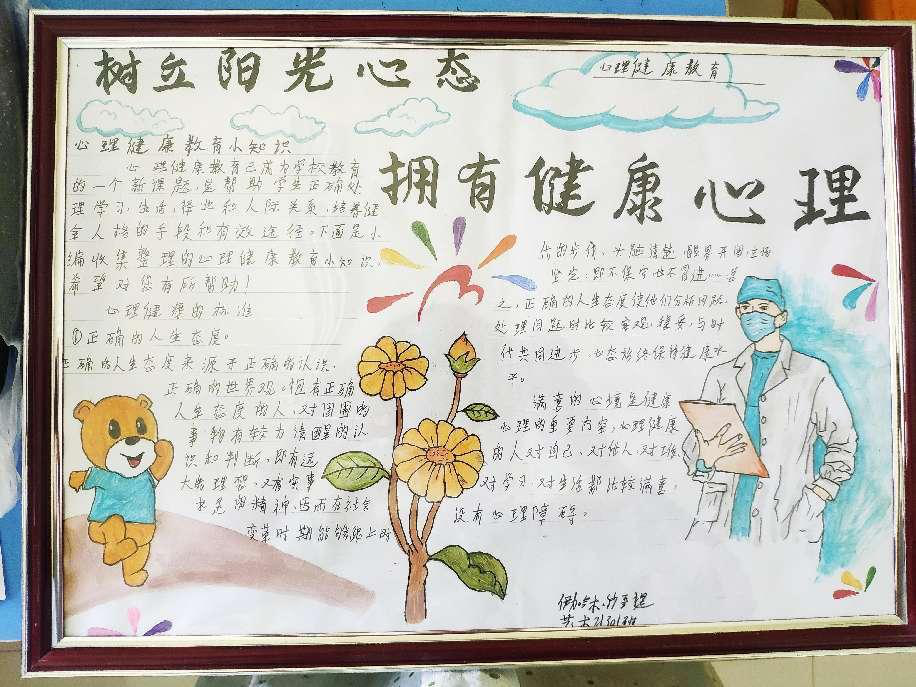 树立阳光心态
心理健康教育
拥有健康心理
心理健康教育小知识
心理健康教育已成为学校教育
的一个新课题，是帮助学生正确处
理学习，生活，择业和人际关系，培养健
全人格的手段和有效途径。下面是小
编收集整理的心理健康教育小知识，
希望对您有所帮助！
心理健康的标准
①正确的人生态度。
正确的人生态度来源于正确的认识，
正确的世界观。但有正确
人生态度的人，对周围的
事物有较为清醒的认
识和判断，既有远
大的理想，又有实事
求是的精神，因而在社会
变革时期能够跟上时
代的步伐，头脑清楚，眼界开阔，立场
坚定，即不保守也不冒进……总
之，正确的人生态度使他们分析问题，
处理问题时比较客观，稳妥，与时
代共同进步，心态始终保持健康水
平。
满意的心境是健康
心理的重要内容，心理健康
的人对自己、对他人，对工作，
对学习，对生活都比较满意，
没有心理障碍。